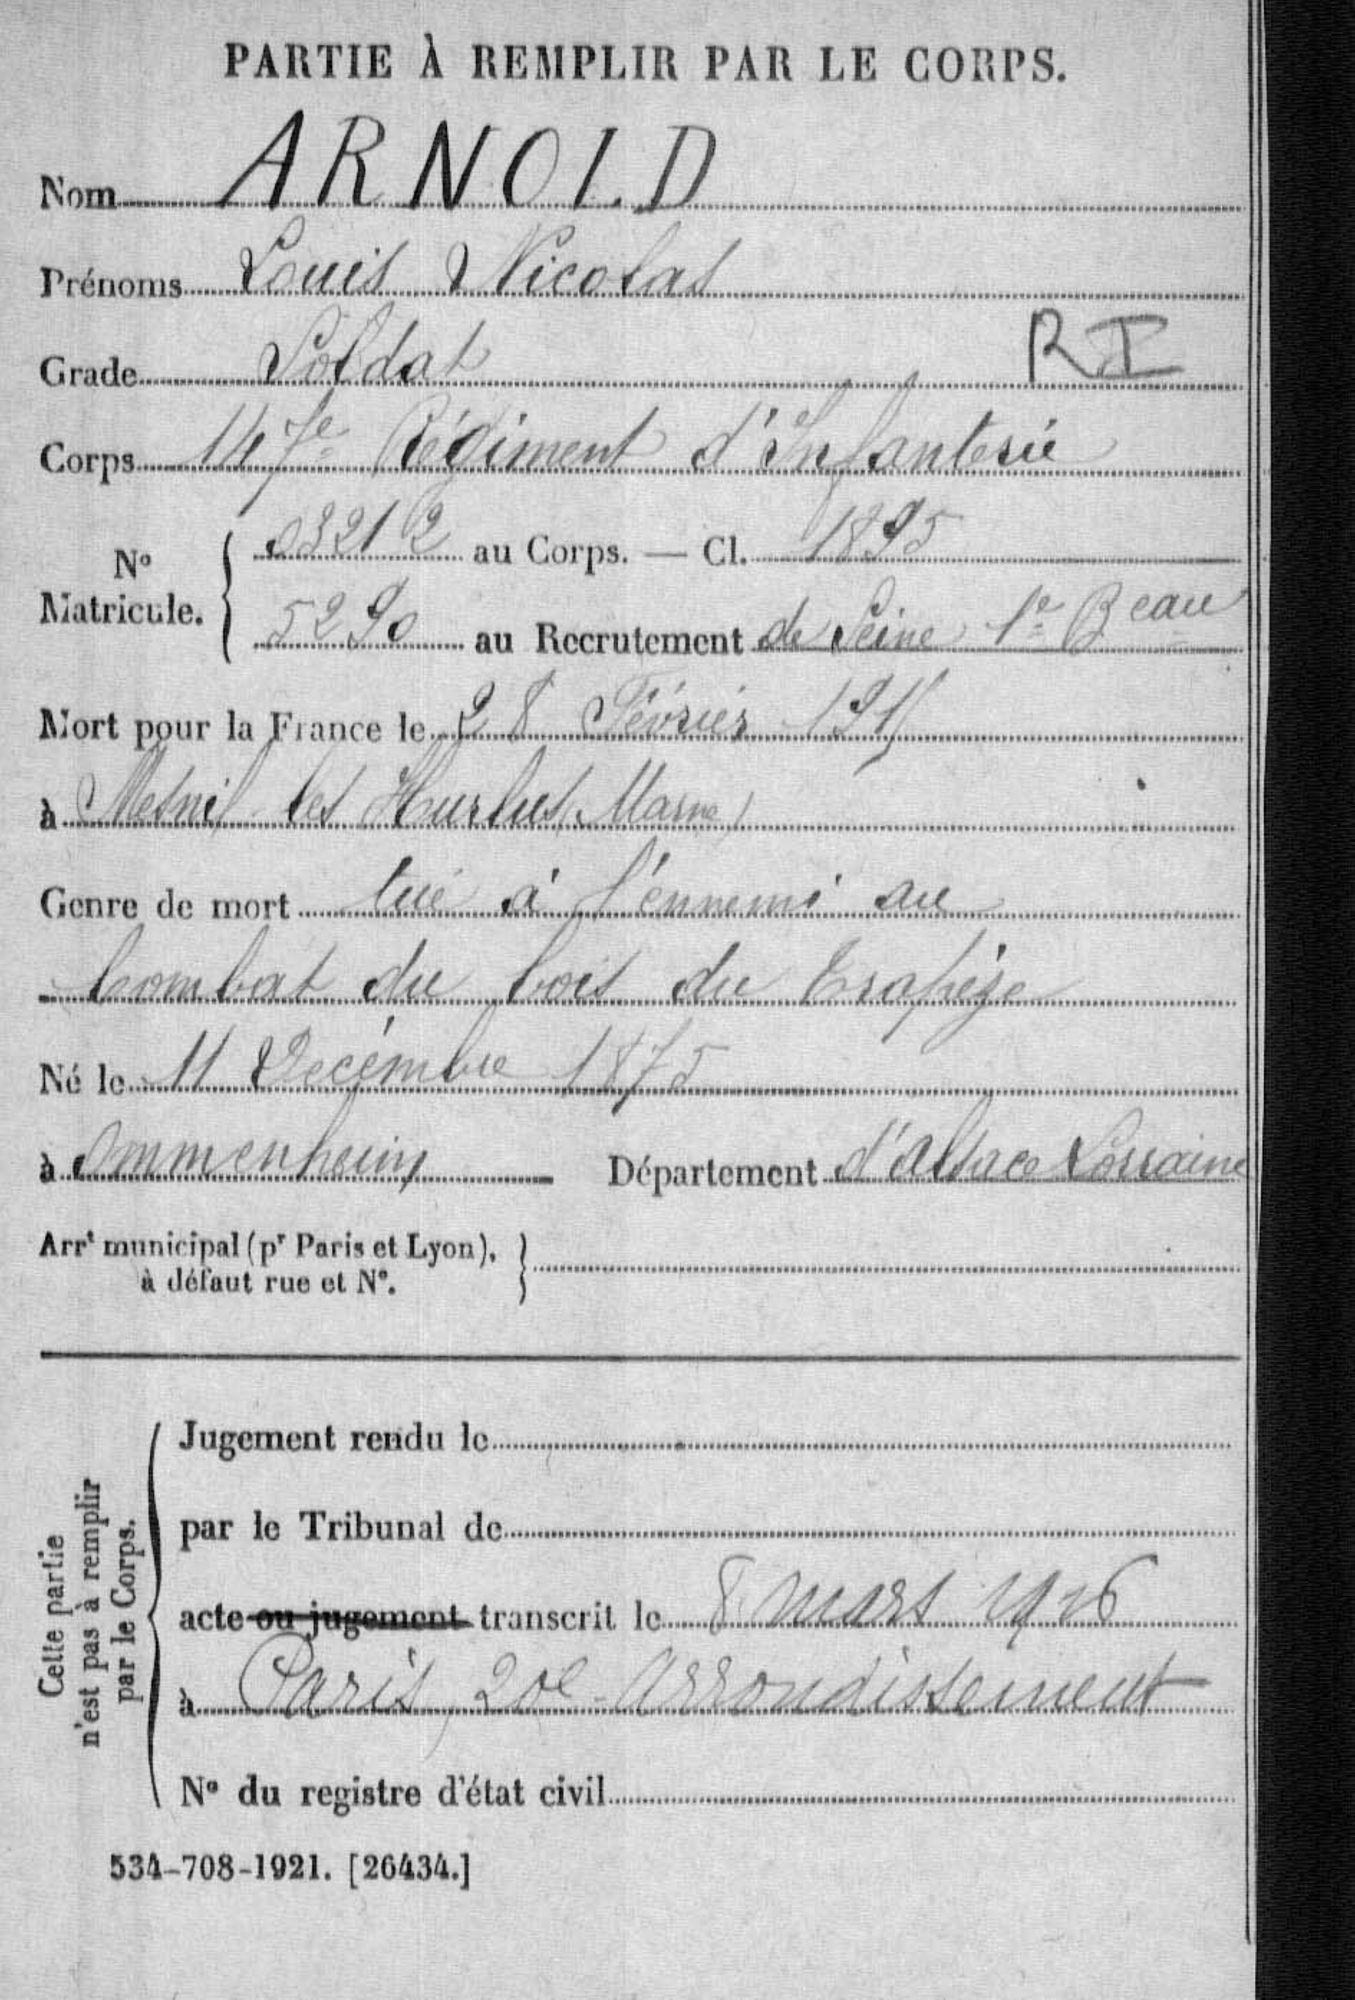 PARTIE À REMPLIR PAR LE CORPS.
Nom ARNOLD
Prénoms Louis Nicolas
Grade Soldat
RI
Corps 147e Régiment d'Infanterie
No Matricule. { 03212 au Corps. — Cl. 1895
5290 au Recrutement de Seine 1e Beau
Mort pour la France le 28 Février 1915
à Mesnil les Hurlus (Marne)
Genre de mort tué à l'ennemi au
Combat du bois du Trapèze
Né le 11 Décembre 1875
à Ommenheim Département d'Alsace Lorraine
Arrt municipal (pr Paris et Lyon),
à défaut rue et No. }
Cette partie
n'est pas à remplir
par le Corps.
Jugement rendu le
par le Tribunal de
acte ou jugement transcrit le 8 mars 1916
à Paris, 20e Arrondissement
No du registre d'état civil
534-708-1921. [26434.]